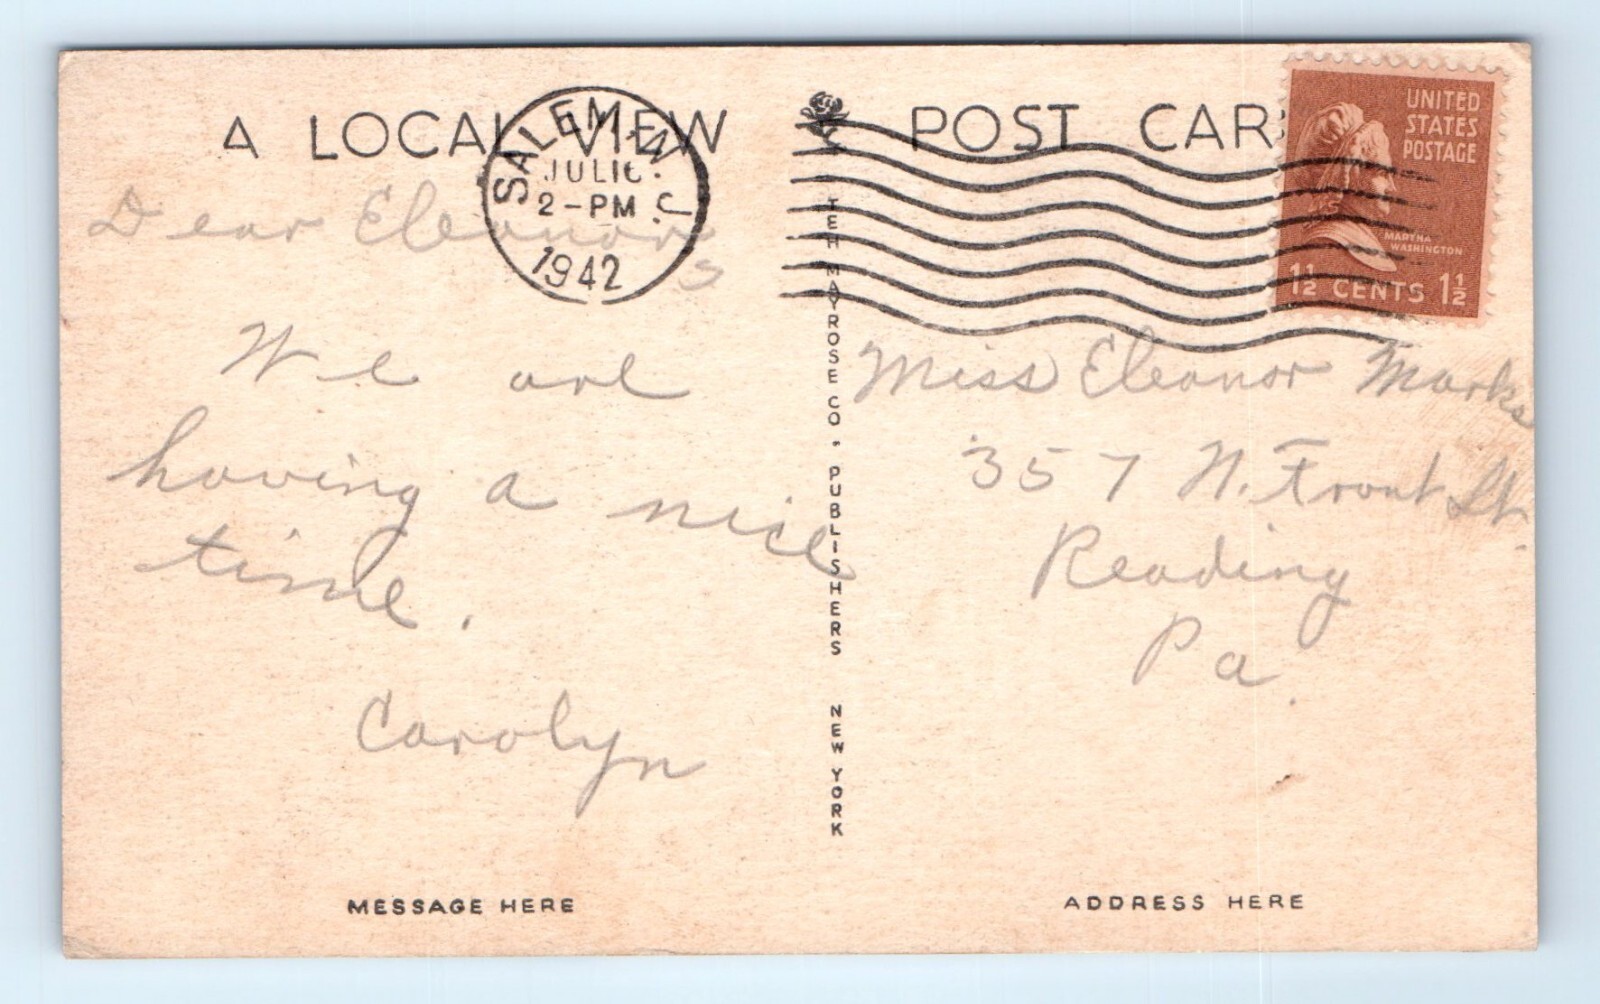 A LOCAL VIEW
POST CAR
SALEM
JUL 16
2-PM
1942
UNITED
STATES
POSTAGE
MARTHA
WASHINGTON
1½ CENTS 1½
Dear Eleanor
We are
having a nice
time.
Carolyn
Miss Eleanor Marks
357 N. Front St.
Reading
Pa.
THE MAYROSE CO - PUBLISHERS NEW YORK
MESSAGE HERE
ADDRESS HERE